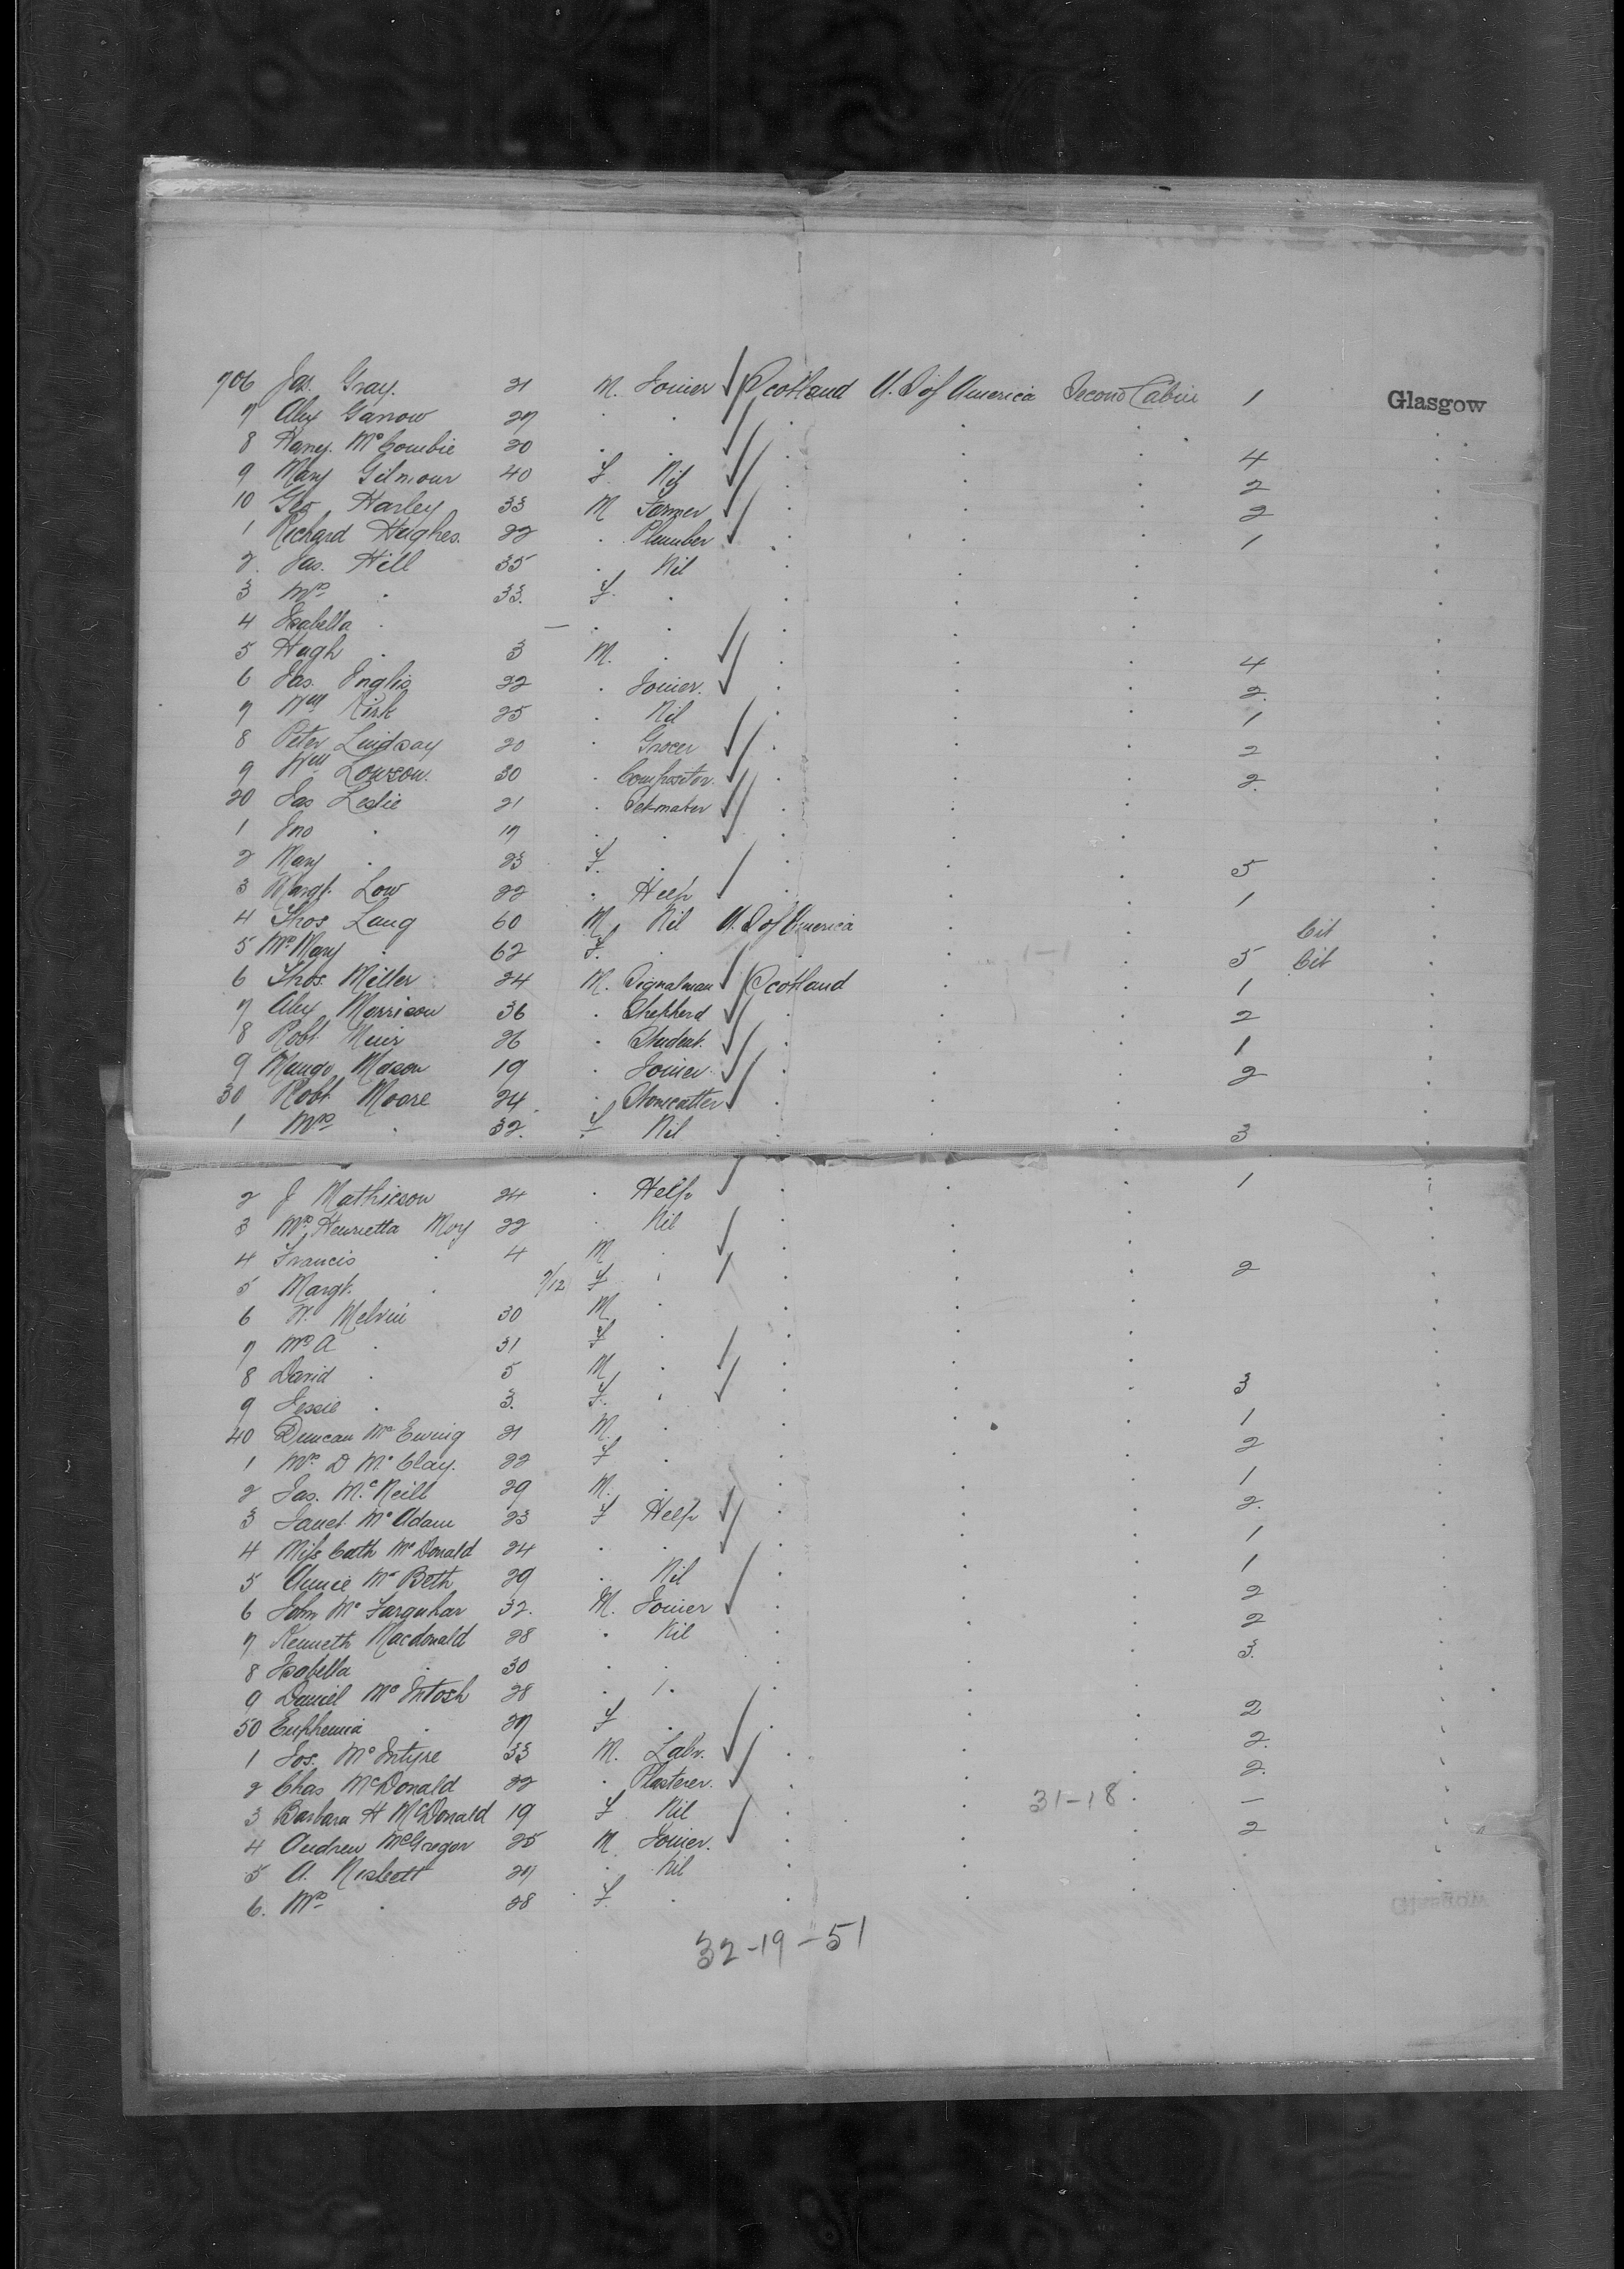 706 Jas. Gray. 21 M. Joiner Scotland U.S of America Second Cabin 1 Glasgow
7 Alex Garrow 27 . . . . . .
8 Harry. McCombie 20 . . . . . 4 .
9 Mary Gilmour 40 F. Nil . . . 2 .
10 Geo Harley 33 M Farmer . . . 2 .
1 Richard Hughes. 22 . Plumber . . . 1 .
2. Jas. Hill 35 . Nil . . . .
3 Mrs . 33. F. . . . . .
4 Isabella . — . . . . . .
5 Hugh . 3 M. . . . . 4 .
6 Jas. Inglis 22 . Joiner. . . . 2. .
7 Wm Kirk 25 . Nil . . . 1 .
8 Peter Lindsay 20 . Grocer . . . 2 .
9 Wm Lowson. 30 . Compositor. . . . 2. .
20 Jas Leslie 21 . . . . .
1 Jno . 17 . . . . . .
2 Mary . 23 F. . . . . 5 .
3 Margt. Low 22 . Help . . . 1 .
4 Thos. Lang 60 M Nil U.S of America . . Cit .
5 Mrs Mary . 62 F. . . . . 5 Cit .
6 Thos. Miller 24 M. Signalman Scotland . . 1 .
7 Alex Morrison 36 . Shepherd . . . 2 .
8 Robt. Muir 26 . Student. . . . 1 .
9 Mungo Mason 19 . Joiner. . . . 2 .
30 Robt Moore 24. . Stonecutter . . . .
1 Mrs . 32. F. Nil . . . 3 .
2 J Mathieson 24 . Help . . . 1 .
3 Mrs Henrietta Moy 22 . Nil . . . .
4 Francis . 4 M . . . . .
5 Margt. . 9/12 F . . . . 2 .
6 W. Melvin 30 M . . . . .
7 Mrs A . 31 F . . . . .
8 David . 5 M . . . . .
9 Jessie . 3. F. . . . . 3 .
40 Duncan McEwing 21 M. . . . . 1 .
1 Mrs. D McClay. 22 F . . . . 2 .
2 Jas. McNeill 29 M. . . . . 1 .
3 Janet McAdam 23 F Help . . . 2. .
4 Miss Cath McDonald 24 . . . . . 1 .
5 Annie McBeth 29 . Nil . . . 1 .
6 John McFarquhar 32. M. Joiner . . . 2 .
7 Kenneth Macdonald 28 . Nil . . . 2 .
8 Isabella . 30 . . . . . 3. .
9 Daniel McIntosh 28 . . . . . .
50 Euphemia . 27 F . . . . 2 .
1 Jos. McIntyre 33 M. Labr. . . . 2. .
2 Chas McDonald 22 . Plasterer. . . . 2. .
3 Barbara H McDonald 19 F Nil . . 31-18 . — .
4 Andrew McGregor 25 M Joiner. . . . 2 .
5 A. Nesbett 27 . Nil . . . . .
6. Mrs . 28 F. . . . . . .
32-19-51